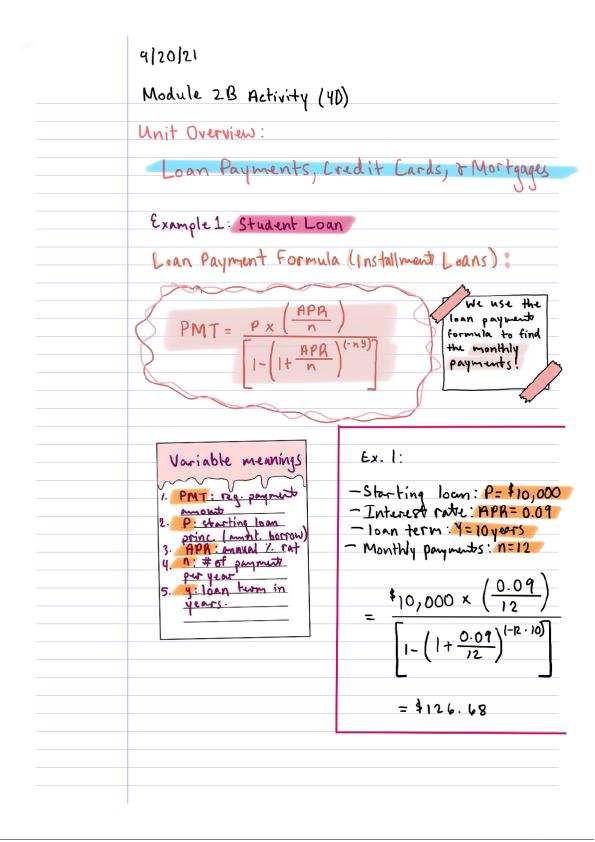 9/20/21
Module 2B Activity (4D)
Unit Overview:
Loan Payments, Credit Cards, & Mortgages
Example 1: Student Loan
Loan Payment Formula (Installment Loans):
PMT = P x (APR/n) / [1-(1+APR/n)^(-ny)]
We use the
loan payment
formula to find
the monthly
payments!
Variable meanings
1. PMT: reg. payment
amount
2. P: starting loan
princ. (amnt. borrow)
3. APR: annual % rat
4. n: # of payment
per year
5. y: loan term in
years.
Ex. 1:
- Starting loan: P = $10,000
- Interest rate: APR = 0.09
- loan term: Y = 10 years
- Monthly payments: n = 12
= $10,000 x (0.09/12) / [1-(1+0.09/12)^(-12·10)]
= $126.68